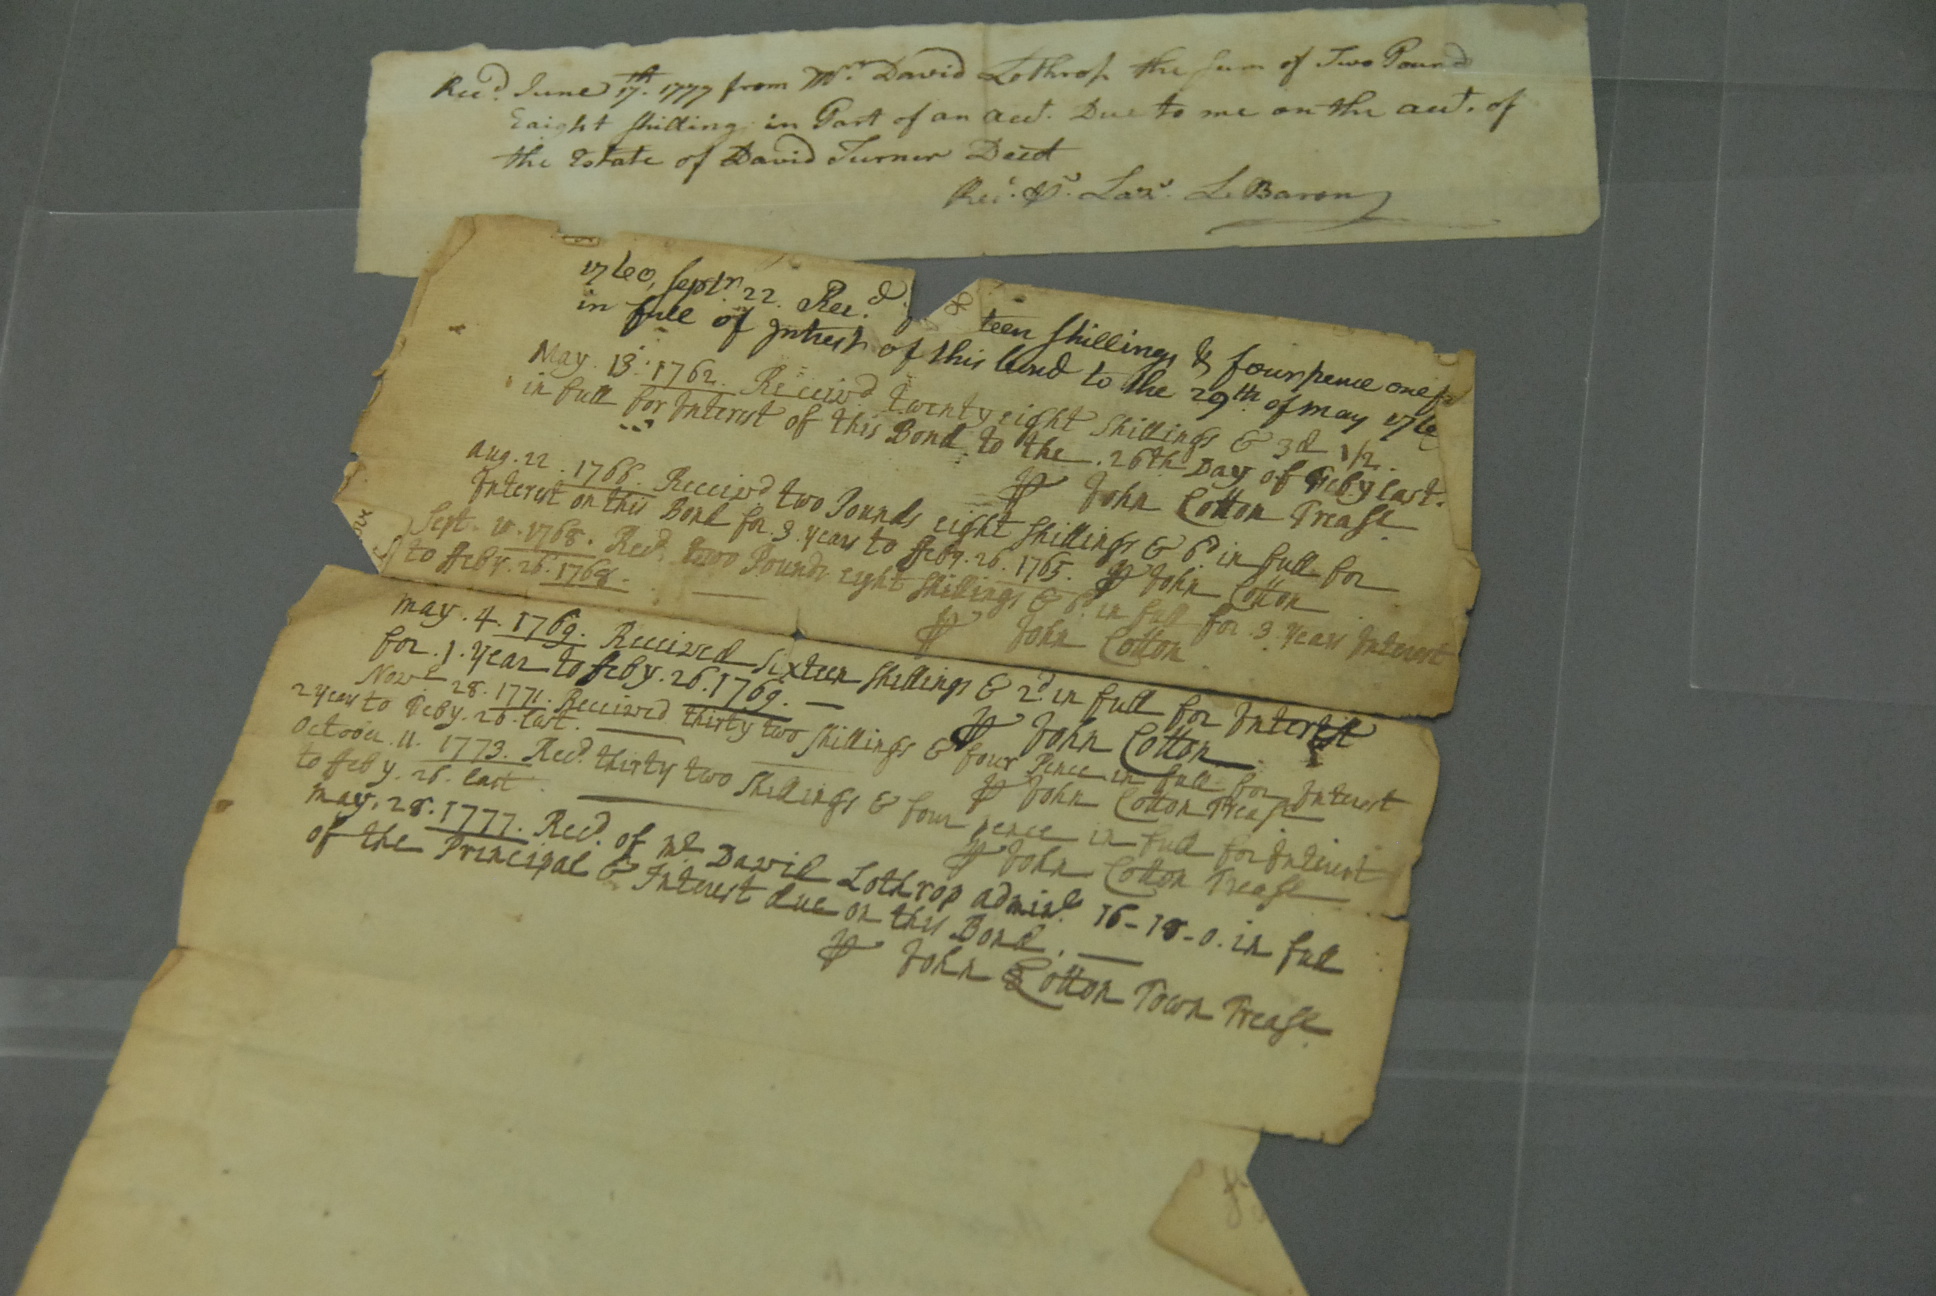 Recd. June 17th. 1777 from Mr. David Lothrop the Sum of Two Pound
Eaight Shilling in Part of an acct. Due to me on the acct. of
the Estate of David Turner Decd
Rec'. Pr. Lazr. LeBaron
1760, Septr. 22. Rec.d teen shillings & fourpence one f
in full of Intrest of this bond to the 29th of may 176
May. 13. 1762. Receivd twenty eight Shillings & 3d 1/2.
in full for Interest of this Bond to the . 26th Day of Feby last.
Pr John Cotton Treasr
aug. 22. 1766. Receivd two Pounds eight Shillings & 6d in full for
Interest on this Bond for .3. years to Feby. 26. 1765. Pr John Cotton
Sept. 10. 1768. Recd. two Pounds eight Shillings & 6d in full for .3. years Interest
to Feby. 26. 1768. Pr John Cotton
may. 4. 1769. Received Sixteen Shillings & 2d in full for Interest
for .1. year to Feby. 26. 1769. Pr John Cotton
Novr 28. 1771. Received thirty two Shillings & four Pence in full for Interest
2 years to Feby. 26. last. Pr John Cotton Treasr
October. 11. 1773. Recd. thirty two Shillings & four pence in full for Interest
to Feby. 26. last Pr John Cotton Treasr
may. 28. 1777. Recd. of mr David Lothrop adminr 16-18-0. in full
of the Principal & Interest due on this Bond.
Pr John Cotton Town Treasr